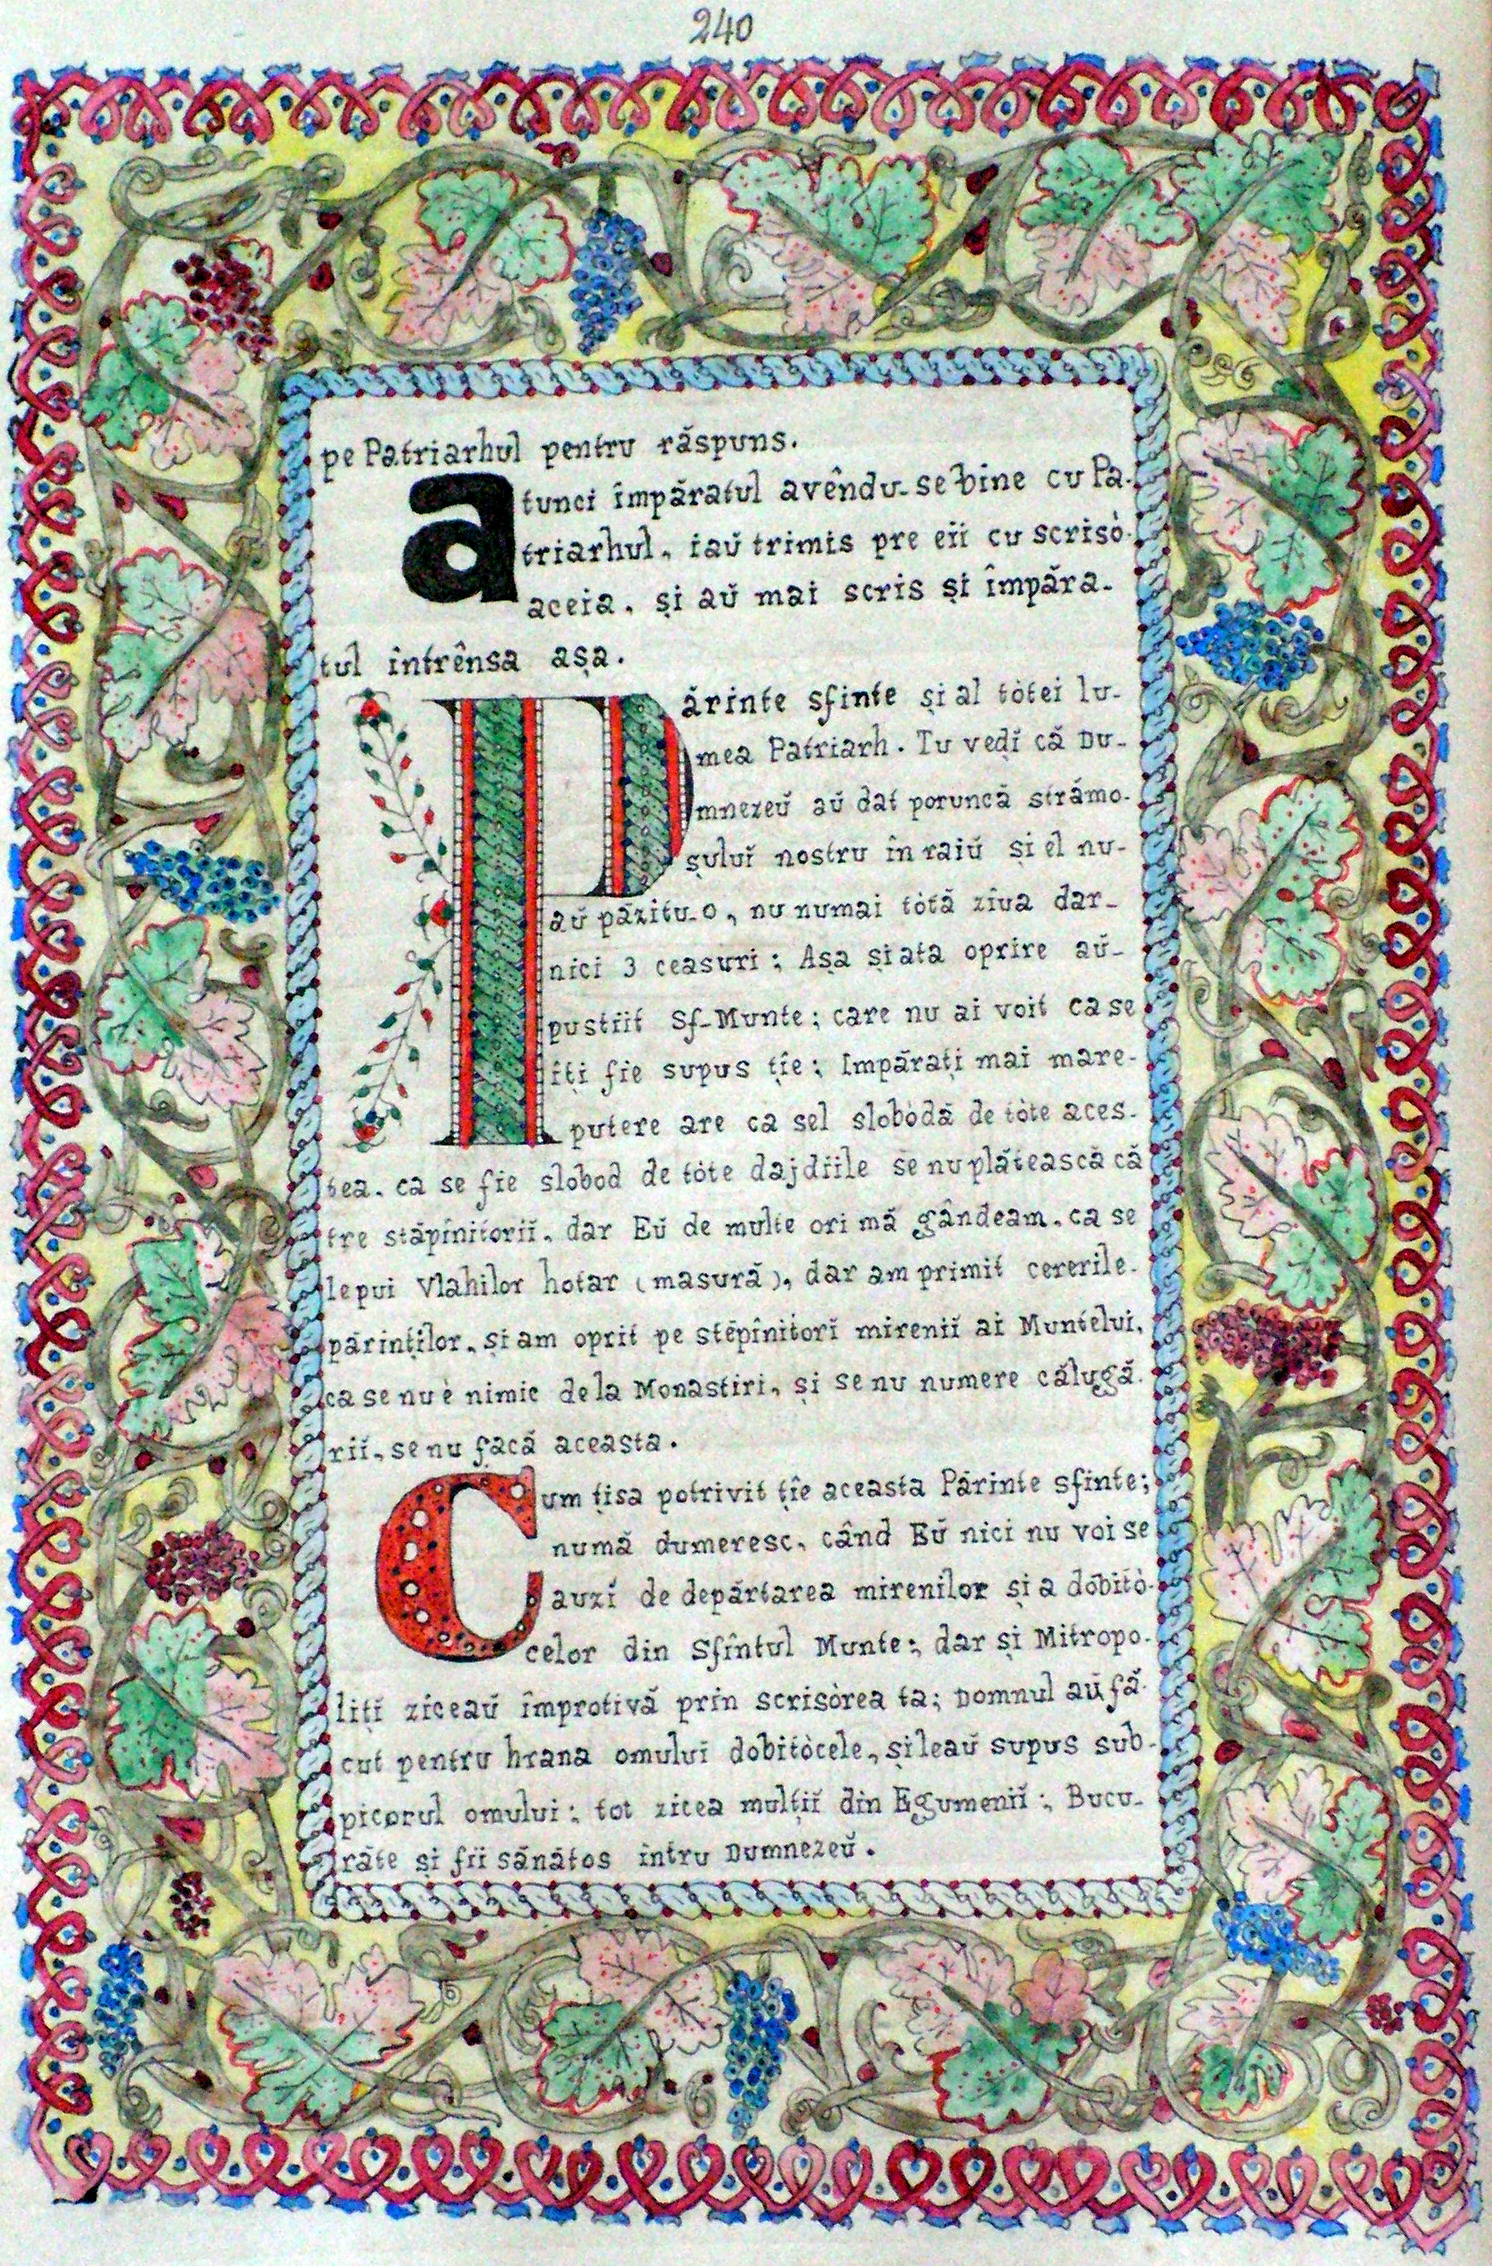 240
pe Patriarhul pentru răspuns.
atunci împăratul avêndu-se bine cu Pa-
triarhul, iaŭ trimis pre eii cu scrisò-
aceia, și aŭ mai scris și împăra-
tul intrênsa așa.
Părinte sfinte și al tòtei lu-
mea Patriarh. Tu vedĭ că Du-
mnezeŭ aŭ dat poruncă strămo-
șuluĭ nostru în raiŭ și el nu-
aŭ păzitu-o, nu numai tòtă zîua dar-
nici 3 ceasuri; Așa și ata oprire aŭ-
pustiit Sf-Munte; care nu ai voit ca se
iți fie supus ție; Impărați mai mare-
putere are ca sel slobòdă de tòte aces-
tea, ca se fie slobod de tòte dajdiile se nu plătească că
tre stăpînitorii, dar Eŭ de multe ori mă gândeam, ca se
le pui Vlahilor hotar (masură), dar am primit cererile-
părinților, și am oprit pe stĕpînitorĭ mirenii ai Muntelui,
ca se nu è nimic de la Monastiri, și se nu numere călugă-
rii, se nu facă aceasta.
Cum țisa potrivit ție aceasta Părinte sfinte;
numă dumeresc, când Eŭ nici nu voi se
auzĭ de depărtarea mirenilor și a dobitò-
celor din Sfîntul Munte; dar și Mitropo-
liți ziceaŭ împrotivă prin scrisòrea ta; Domnul aŭ fă-
cut pentru hrana omuluĭ dobitòcele, și leaŭ supus sub-
picorul omului; tot zicea mulțiĭ din Egumeniĭ; Bucu-
răte și fii sănătos intru Dumnezeŭ.